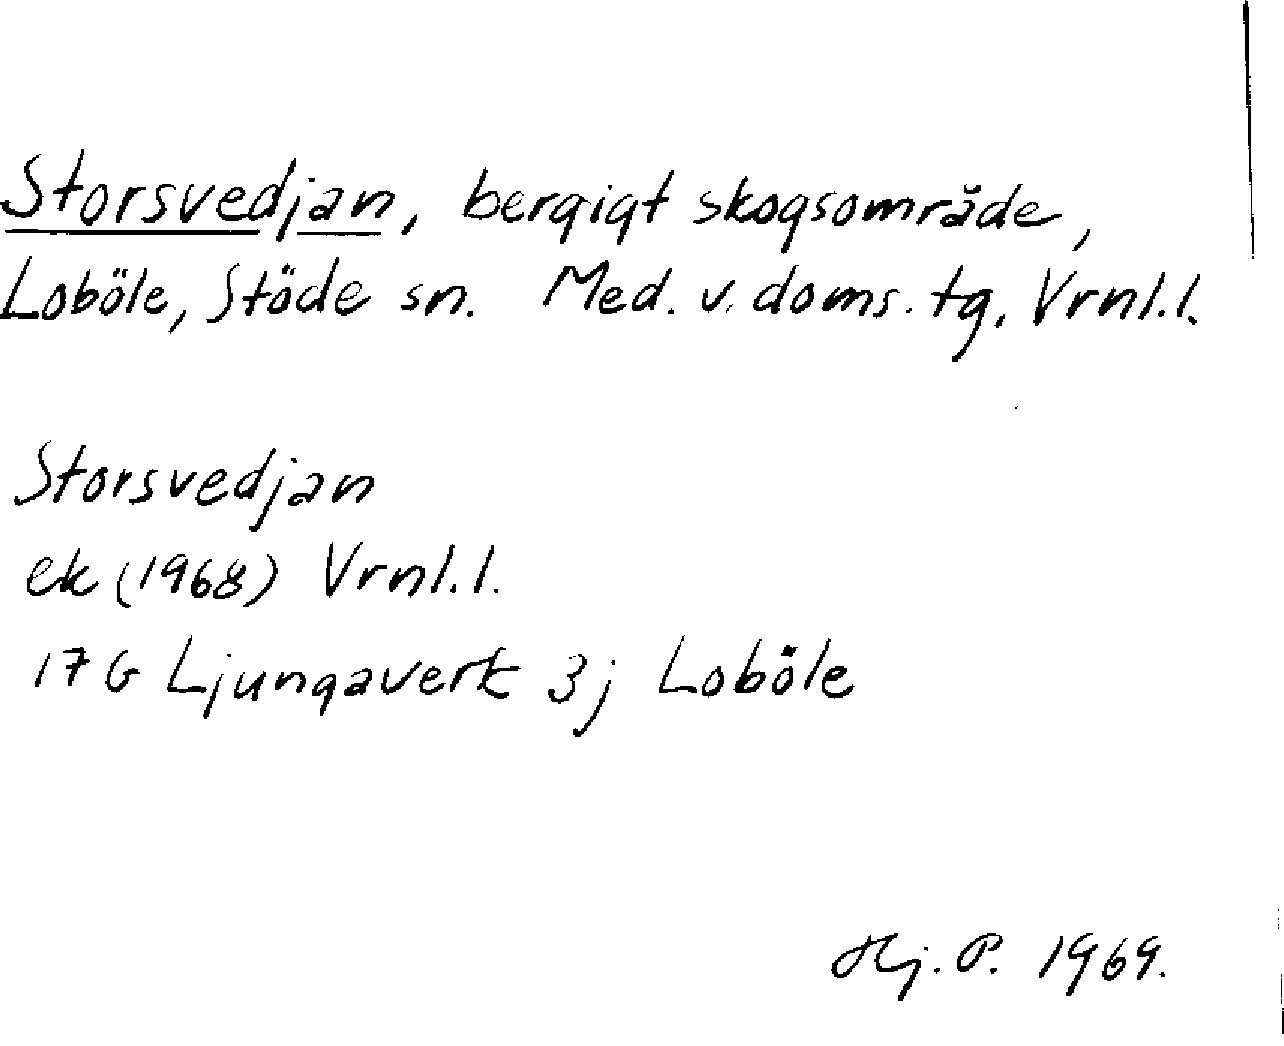 Storsvedjan, bergigt skogsområde,
Loböle, Stöde sn. Med. v. doms. tg, Vrnl.l.
Storsvedjan
ek (1968) Vrnl.l.
17 G Ljungaverk 3j Loböle
Hj. P. 1969.